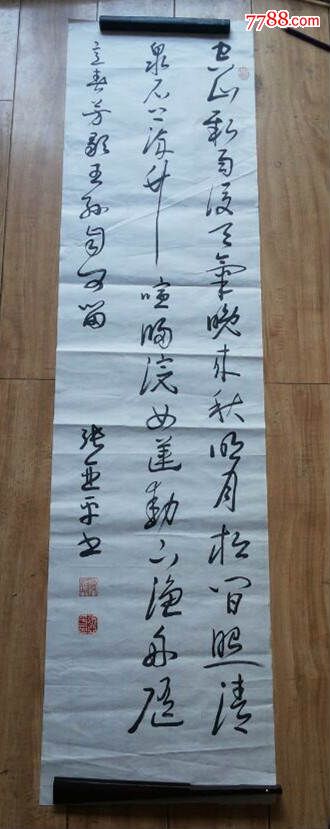 7788.com
空山新雨後天氣晚來秋明月松間照清
泉石上流竹喧歸浣女蓮動下漁舟隨
意春芳歇王孫自可留
張亞平書